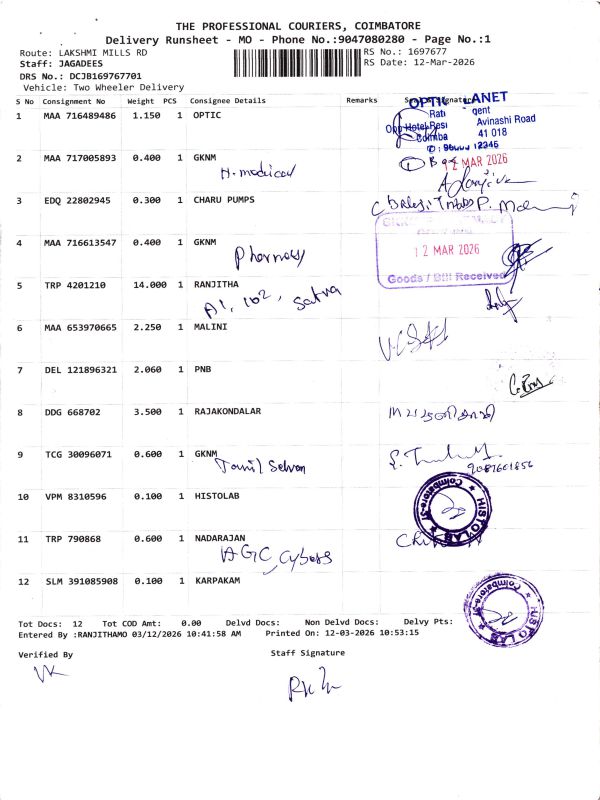 THE PROFESSIONAL COURIERS, COIMBATORE
Delivery Runsheet - MO - Phone No.:9047080280 - Page No.:1
Route: LAKSHMI MILLS RD
RS No.: 1697677
Staff: JAGADEES
RS Date: 12-Mar-2026
DRS No.: DCJB169767701
Vehicle: Two Wheeler Delivery
S No Consignment No Weight PCS Consignee Details Remarks
1 MAA 716489486 1.150 1 OPTIC
LANET
Avinashi Road
41 018
2 MAA 717005893 0.400 1 GKNM
12 MAR 2026
H. medical
3 EDQ 22802945 0.300 1 CHARU PUMPS
4 MAA 716613547 0.400 1 GKNM
12 MAR 2026
Pharmacy
Goods / Bill Received
5 TRP 4201210 14.000 1 RANJITHA
A1, 102, Satva
6 MAA 653970665 2.250 1 MALINI
7 DEL 121896321 2.060 1 PNB
8 DDG 668702 3.500 1 RAJAKONDALAR
9 TCG 30096071 0.600 1 GKNM
Tamil Selvan
10 VPM 8310596 0.100 1 HISTOLAB
HISTO LAB
11 TRP 790868 0.600 1 NADARAJAN
AGC, Cybers
12 SLM 391085908 0.100 1 KARPAKAM
HISTO LAB
Tot Docs: 12 Tot COD Amt: 0.00 Delvd Docs: Non Delvd Docs: Delvy Pts:
Entered By :RANJITHAMO 03/12/2026 10:41:58 AM Printed On: 12-03-2026 10:53:15
Verified By
Staff Signature